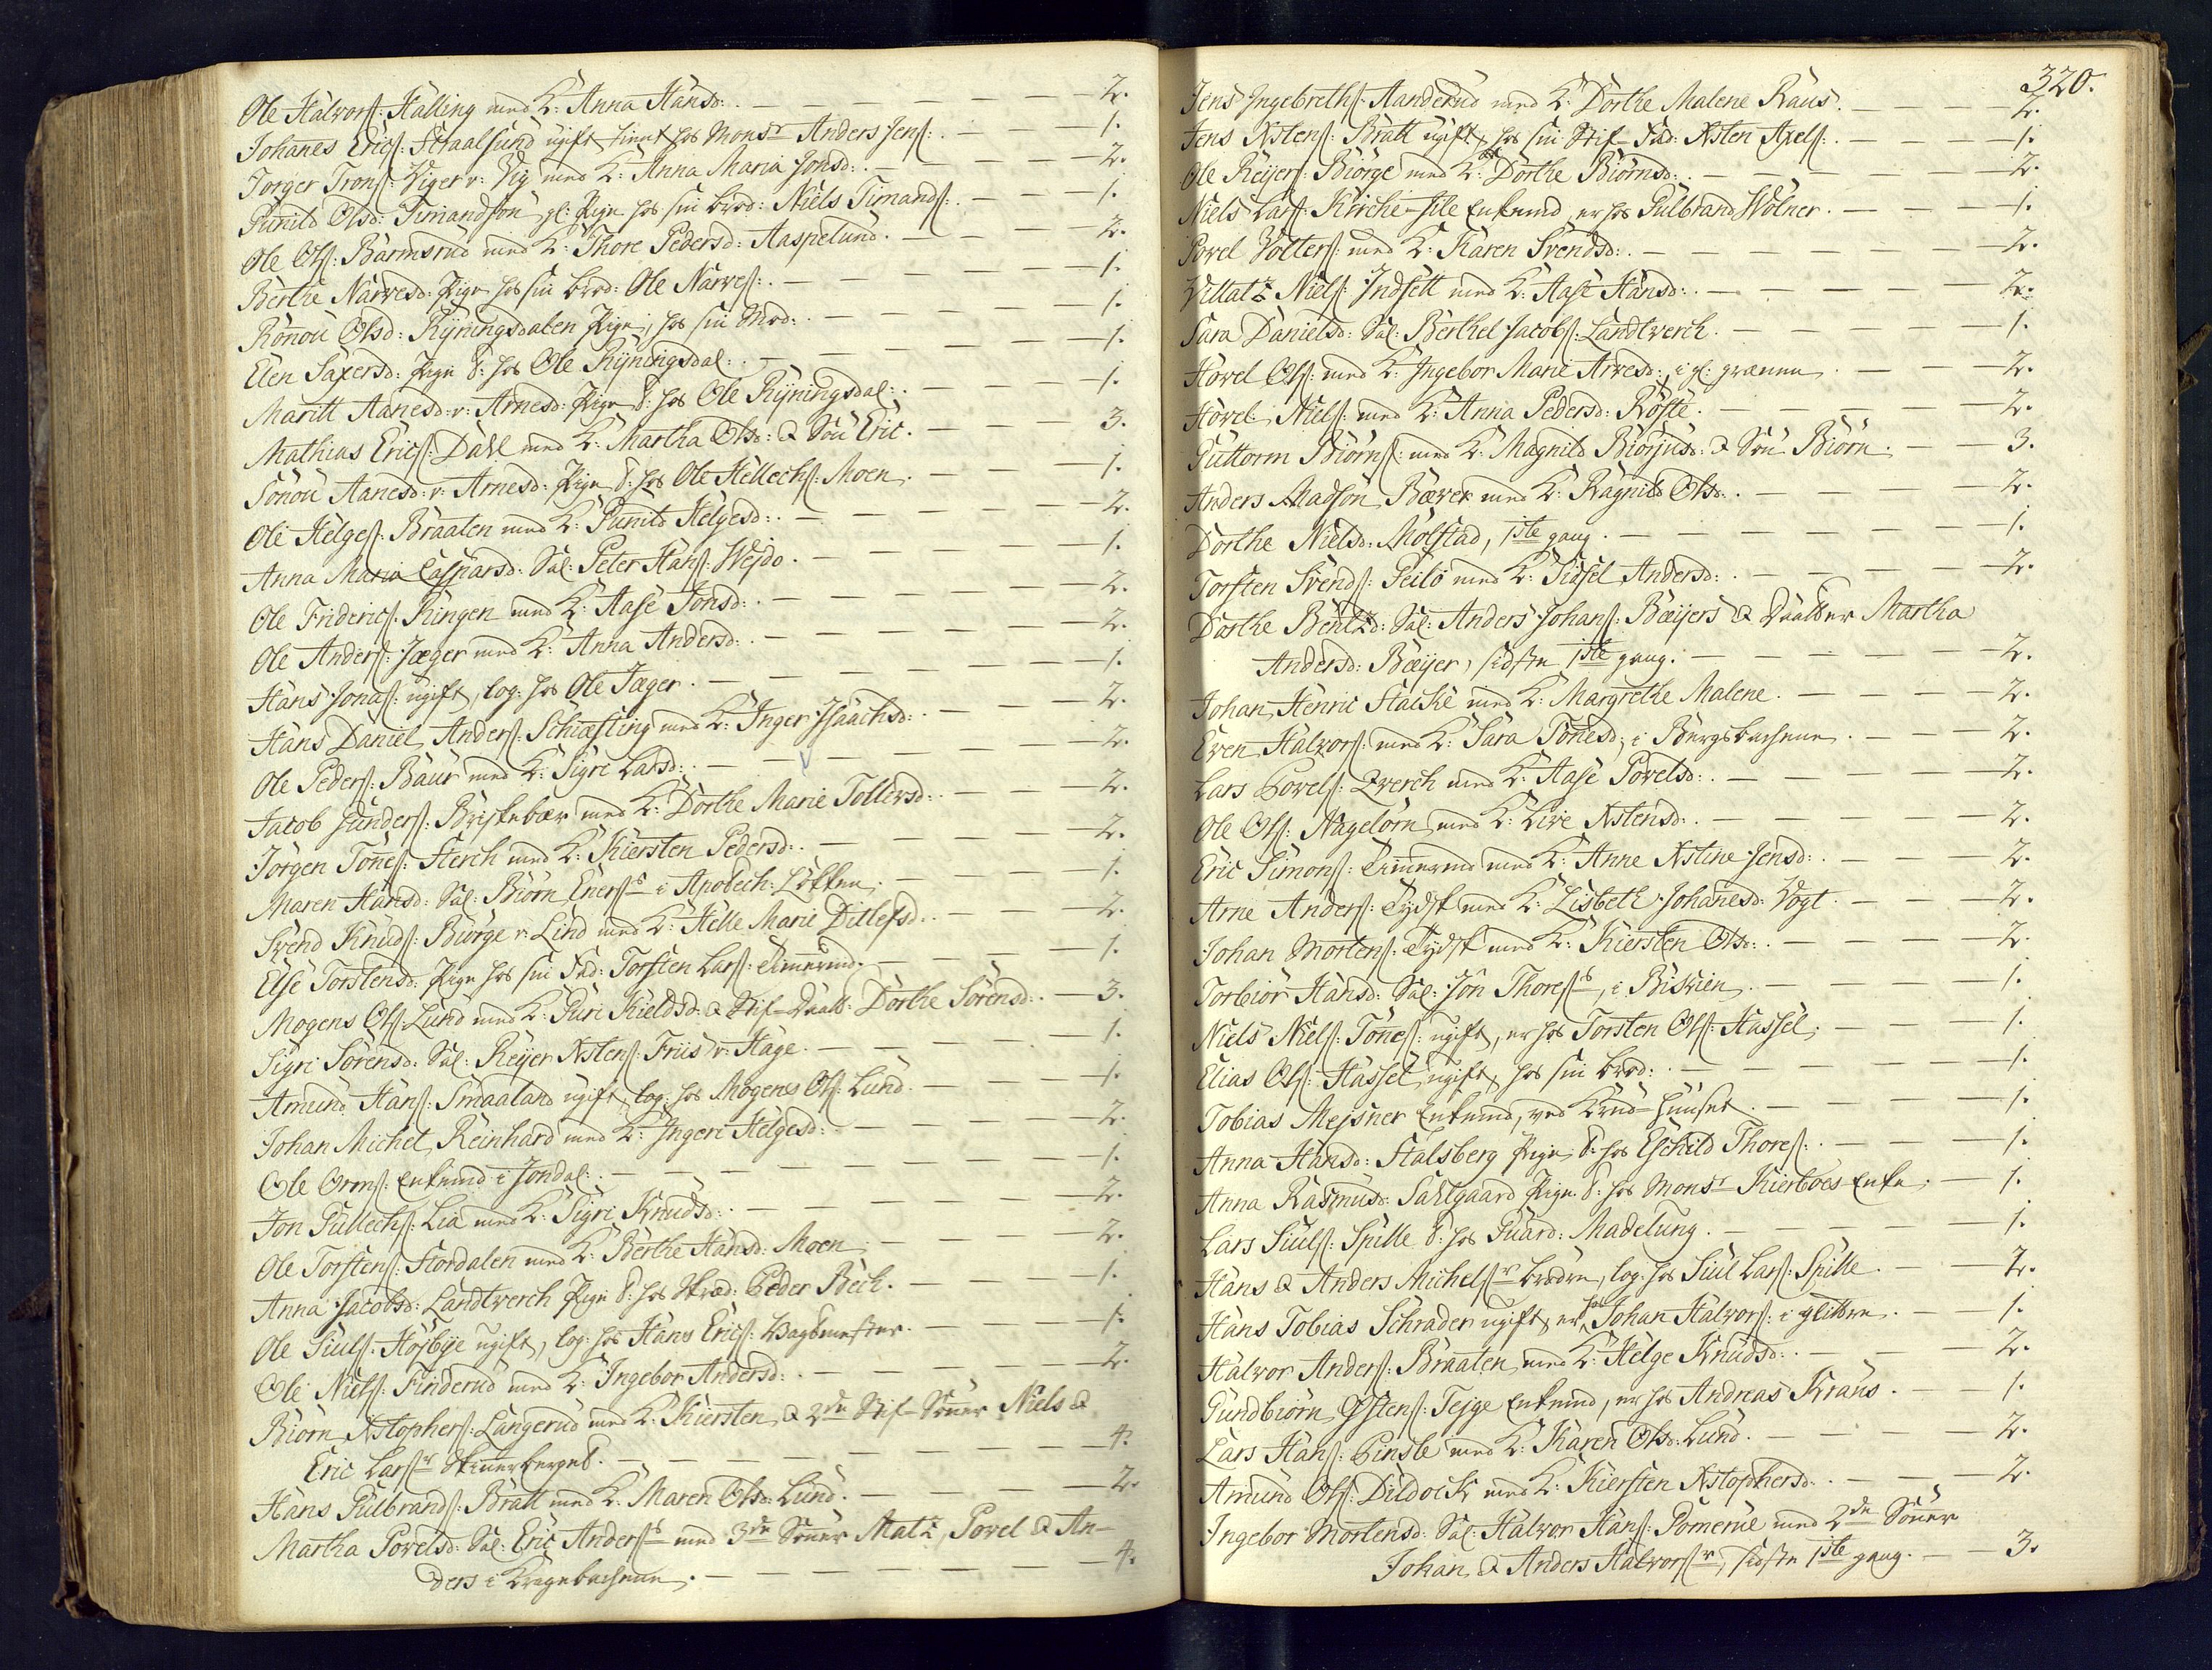 Ole Halvorſ: Halling med K: Anna Hansd:. — 2.
Johanes Ericſ: Straalsund ugift hos Monsr Anders Jenſ:. — 1.
Jörger Tronſ: Viger v: Vig med K: Anna Maria Jonsd:. — 2.
Gunild Olsd: Timandsön gl: Pige hos sin brod: Niels Timandſ:. — 1.
Ole Olſ: Barmsrud med K: Thore Pedersd: Aaspelund. — 2.
Berthe Narvesd: Pige hos sin brod: Ole Narveſ:. — 1.
Rönou Olsd: Ryningsdalen Pige, hos sin Mod:. — 1.
Elen Saxersd: Pige T: hos Ole Ryningsdal:. — 1.
Maritt Aanesd: v: Arnesd: Pige T: hos Ole Ryningsdal:. — 1.
Mathias Ericſ: Dahl med K: Martha Olsd: & Sön Eric. — 3.
Sönou Aanesd: v: Arnesd: Pige T: hos Ole Hellechſ: Moen. — 1.
Ole Helgeſ: Braaten med K: Gunild Helgesd:. — 2.
Anna Maria Caspersd: Sal: Peter Hanſ: Wejdo. — 1.
Ole Fridericſ: Ringen med K: Aase Jonsd:. — 2.
Ole Anderſ: Jæger med K: Anna Andersd:. — 2.
Hans Jonaſ: ugift, log: hos Ole Jæger. — 1.
Hans Daniel Anderſ: Schiæsting med K: Inger Isaachsd:. — 2.
Ole Pederſ: Baur med K: Sigri Larsd:. — 2.
Jacob Gunderſ: Briskebær med K: Dorthe Marie Tollevsd:. — 2.
Jörgen Töneſ: Sterch med K: Kiersten Pedersd:. — 2.
Maren Hansd: Sal: Biörn Enerſs i Apotech: Lökken. — 1.
Svend Knudſ: Börge v: Lind med K: Helle Marie Ditlefsd:. — 2.
Else Torstensd: Pige hos sin Fad: Torsten Larſ: Timermd. — 1.
Mogens Olſ: Lund med K: Guri Kieldsd: & Stif-Daatt: Dorthe Sörensd:. — 3.
Sigri Sörensd: Sal: Reyer Xstenſ: Friis v: Hage. — 1.
Amund Hanſ: Smaaland ugift, log: hos Mogens Olſ: Lund. — 1.
Johan Michel Reinhard med K: Ingeri Helgesd:. — 2.
Ole Ormſ: Enkemd i Jondal:. — 1.
Jon Gullechſ: Lia med K: Sigri Knudsd:. — 2.
Ole Torstenſ: Stordalen med K: Berthe Hansd: Moen. — 2.
Anna Jacobsd: Landtverch Pige T: hos Skræd: Peder Bech. — 1.
Ole Siulſ: Höjbye ugift, log: hos Hans Ericſ: Bagemester. — 1.
Ole Nielſ: Finderud med K: Ingebor Andersd:. — 2.
Biörn Xstopherſ: Langerud med K: Kiersten & 2de Stif-Sönner Niels &
Eric Larſr Skinerberget. — 4.
Hans Gulbrandſ: Bratt med K: Maren Olsd: Lund. — 2.
Martha Povelsd: Sal: Eric Anderſs med 3de Sönner Matz, Povel & An-
ders i Kragebachene. — 4.
320.
Jens Ingebrethſ: Aanderud med K: Dorthe Malene Raus. — 2.
Jens Xstenſ: Bratt ugift, hos sin Stif-Fad: Xsten Axelſ:. — 1.
Ole Reyerſ: Biörge med K: Dorthe Biörnsd:. — 2.
Niels Larſ: Kirche-Stie Enkemd, er hos Gulbrand Wölner. — 1.
Povel Volterſ: med K: Karen Svendsd:. — 2.
Villatz Nielſ: Indsett med K: Aase Hansd:. — 2.
Sara Danielsd: Sal: Berthel Jacobſ: Landtverch. — 1.
Hovel Olſ: med K: Ingebor Marie Arvesd: i gl: grænnen. — 2.
Hovel Nielſ: med K: Anna Pedersd: Röste. — 2.
Guttorm Biörnſ: med K: Magnild Biörjusd: & Sön Biörn. — 3.
Anders Madsön Bæver med K: Ragnild Olsd:. — 2.
Dorthe Nielsd: Molstad, 1ste gang. — 1.
Torsten Svendſ: Geilö med K: Sidsel Andersd:. — 2.
Dorthe Bentzd: Sal: Anders Johanſ: Bæyers & Daatter Martha
Andersd: Bæyer, sidste 1ste gang. — 2.
Johan Henric Hacke med K: Margrethe Malene. — 2.
Even Halvorſ: med K: Sara Tönesd: i Bergsbachene. — 2.
Lars Povelſ: Qverch med K: Aase Povelsd:. — 2.
Ole Olſ: Nagelörn med K: Live Xstensd:. — 2.
Eric Simonſ: Timermd med K: Anne Xstine Jensd:. — 2.
Arne Anderſ: Tydsk med K: Lisbeth Johanesd: Vogt. — 2.
Johan Mortenſ: Tydsk med K: Kiersten Olsd:. — 2.
Torbiör Hansd: Sal: Jön Thoreſs, i Biskien. — 1.
Niels Nielſ: Töneſ: ugift, er hos Torsten Olſ: Hassel. — 1.
Elias Olſ: Hassel ugift, hos sin brod:. — 1.
Tobias Mejsner Enkemd, ved Krud-Huuset. — 1.
Anna Hansd: Stalsberg Pige T: hos Eschild Thoreſ:. — 1.
Anna Rasmusd: Sahlgaard Pige T: hos Monsr Kierboes Enke. — 1.
Lars Siulſ: Spille T: hos Guard: Madelung. — 1.
Hans & Anders Michelſr brödre, log: hos Siul Larſ: Spille. — 2.
Hans Tobias Schrader ugift, er hos Johan Halvorſ: i glittre. — 1.
Halvor Anderſ: Braaten med K: Helge Knudsd:. — 2.
Gundbiörn Østenſ: Tejge Enkemd, er hos Andreas Kraus. — 1.
Lars Hanſ: Pinsle med K: Karen Olsd: Lund. — 2.
Amund Olſ: Dildock med K: Kiersten Xstophersd:. — 2.
Ingebor Mortensd: Sal: Halvor Hanſ: Pomerue med 2de Sönner
Johan & Anders Halvorſr, sidste 1ste gang. — 3.